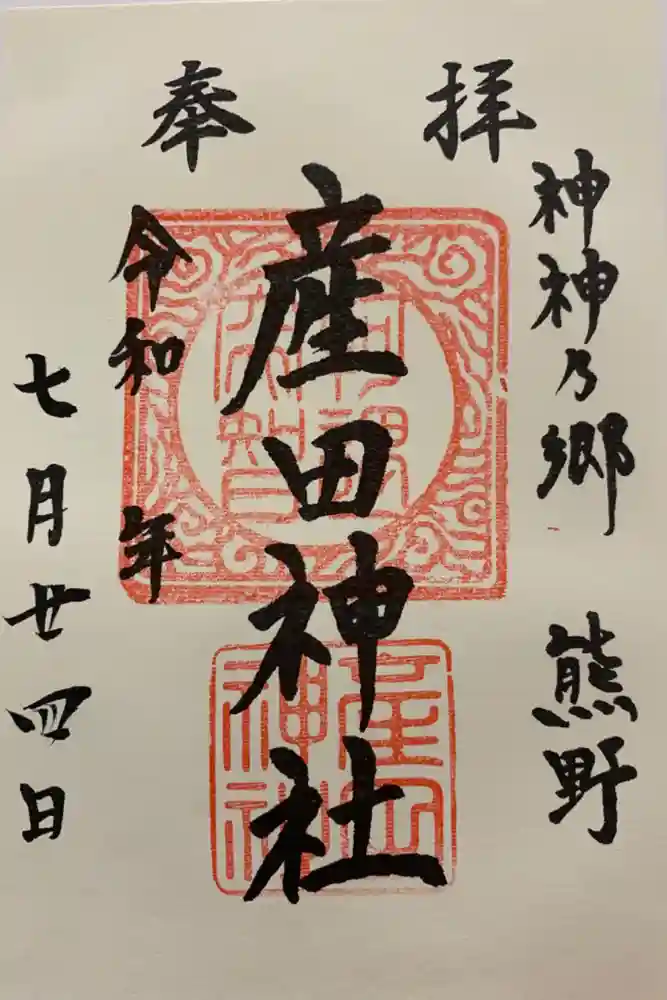 奉拝
神神乃郷 熊野
産田神社
令和 年
七月廿四日